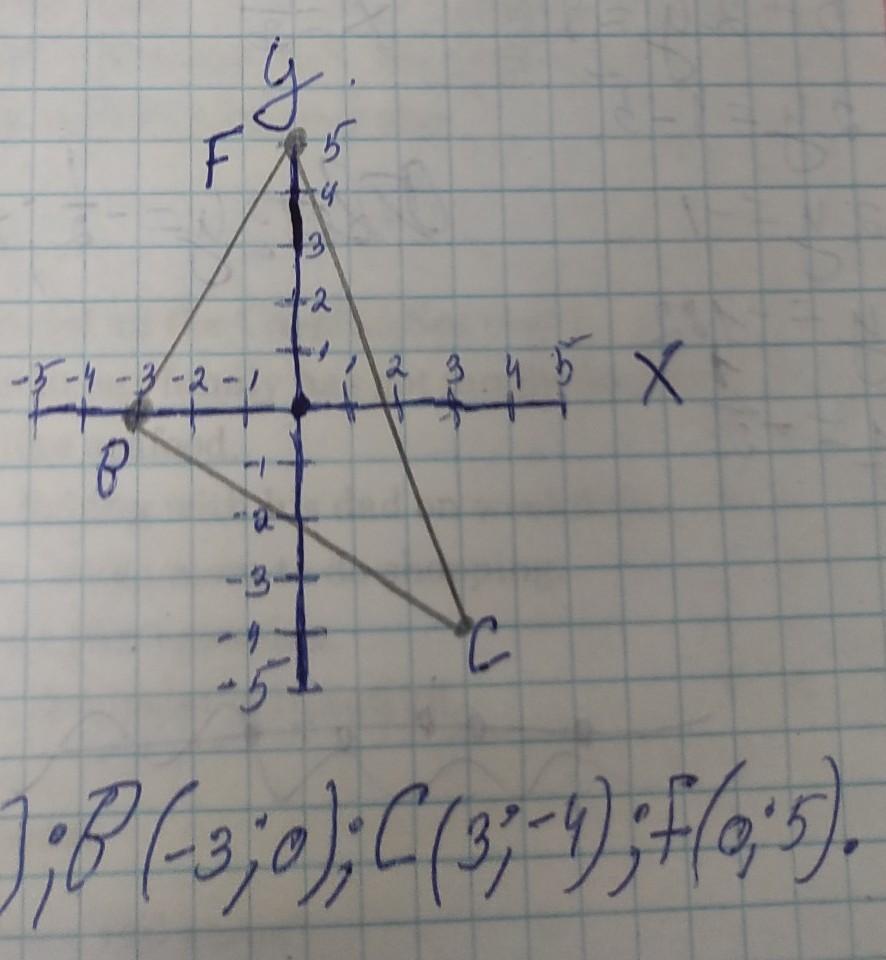 y
F 5
4
3
2
1
-5 -4 -3 -2 -1 1 2 3 4 5 X
B -1
-2
-3
-4
C
-5
); B(-3;0); C(3;-4); F(0;5).